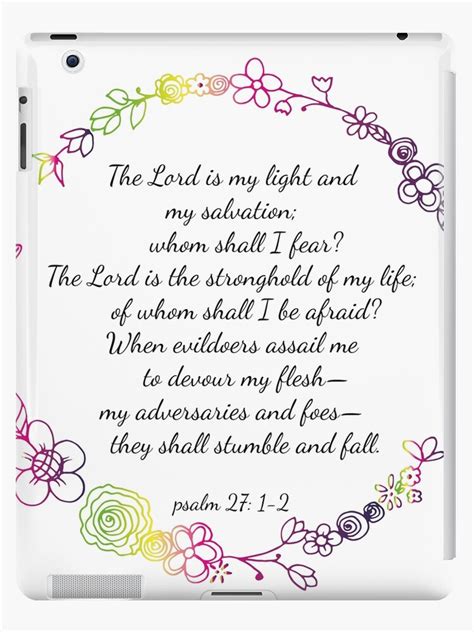 The Lord is my light and
my salvation;
whom shall I fear?
The Lord is the stronghold of my life;
of whom shall I be afraid?
When evildoers assail me
to devour my flesh—
my adversaries and foes—
they shall stumble and fall.
psalm 27: 1-2